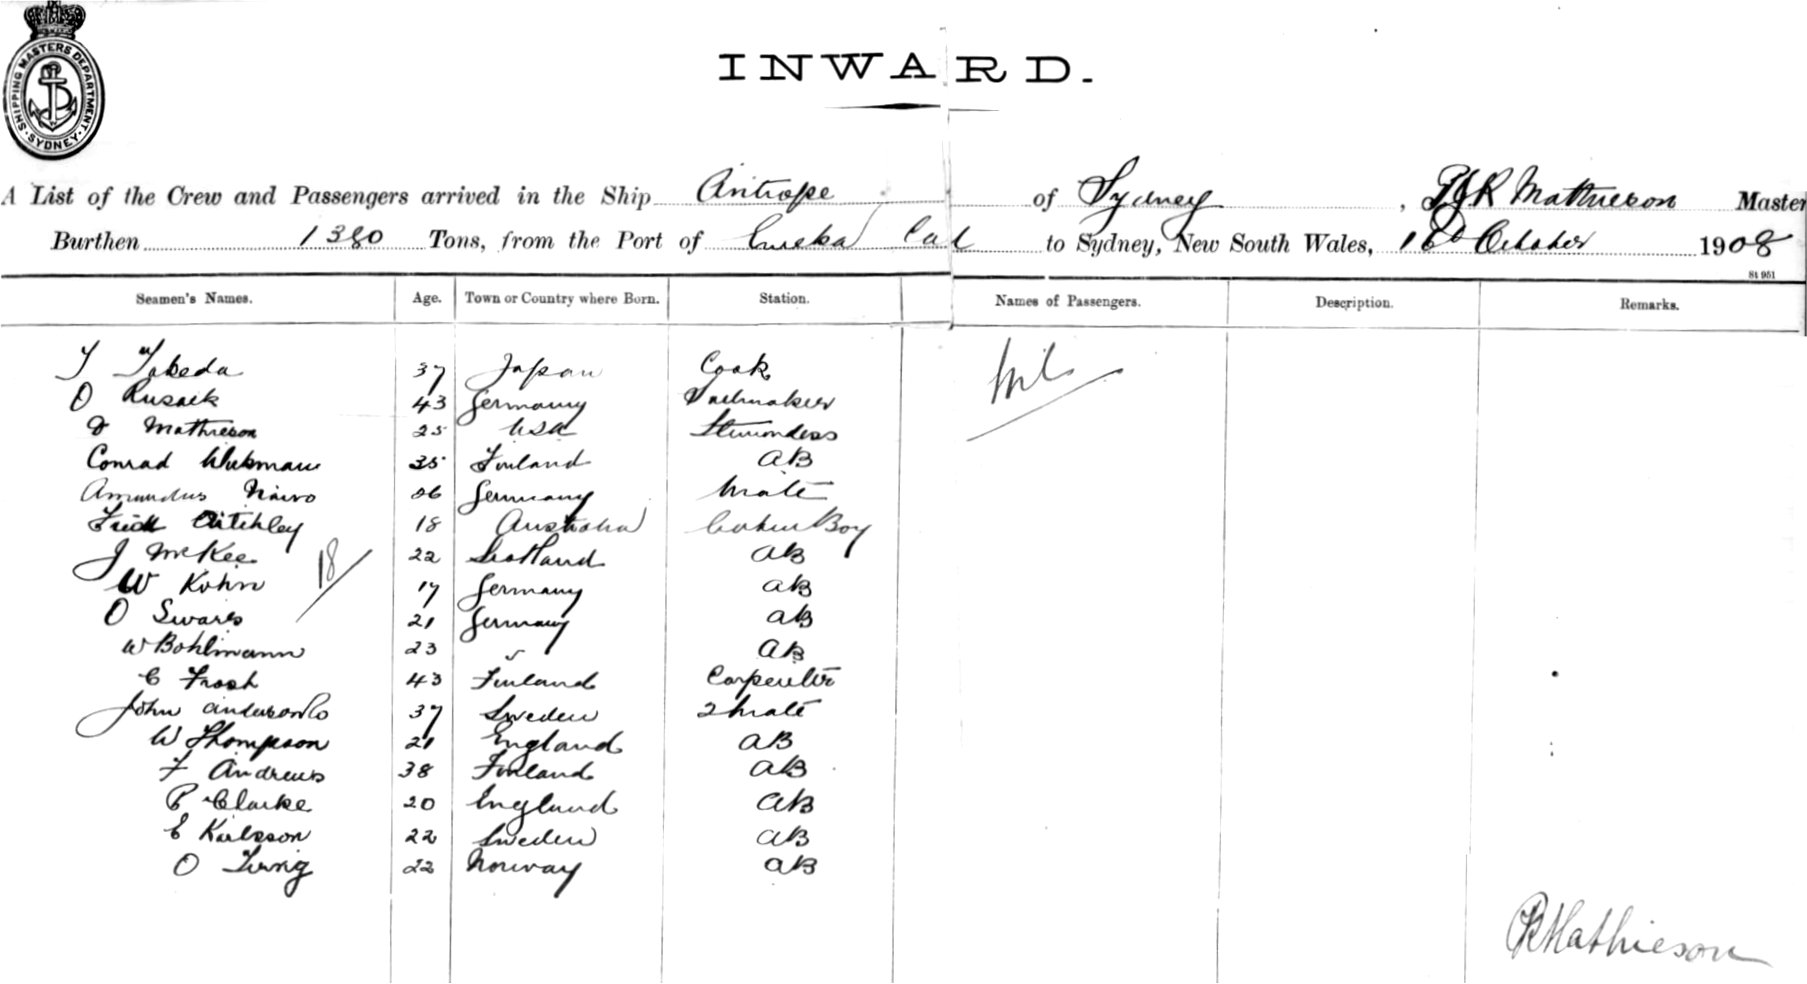 SHIPPING MASTERS DEPARTMENT
SYDNEY
INWARD.
A List of the Crew and Passengers arrived in the Ship Antiope of Sydney, R Mathieson Master
Burthen 1380 Tons, from the Port of Eureka Cal to Sydney, New South Wales, 16th October 1908
St 951
Seamen's Names. Age. Town or Country where Born. Station. Names of Passengers. Description. Remarks.
T Takeda 37 Japan Cook Nil
O Rusack 43 Germany Sailmaker
Mathieson 25 USA Stewardess
Conrad 35 Finland AB
Amandus 26 Germany Mate
Aitchley 18 Australia Cabin Boy
J McKee 22 Scotland AB
18
W Kohn 17 Germany AB
O Swars 21 Germany AB
W Bohlmann 23 AB
C Frosh 43 Finland Carpenter
John 37 Sweden 2 Mate
W Thompson 21 England AB
F Andrews 38 Finland AB
P Clarke 20 England AB
E Karlsson 22 Sweden AB
O 22 Norway AB
Mathieson